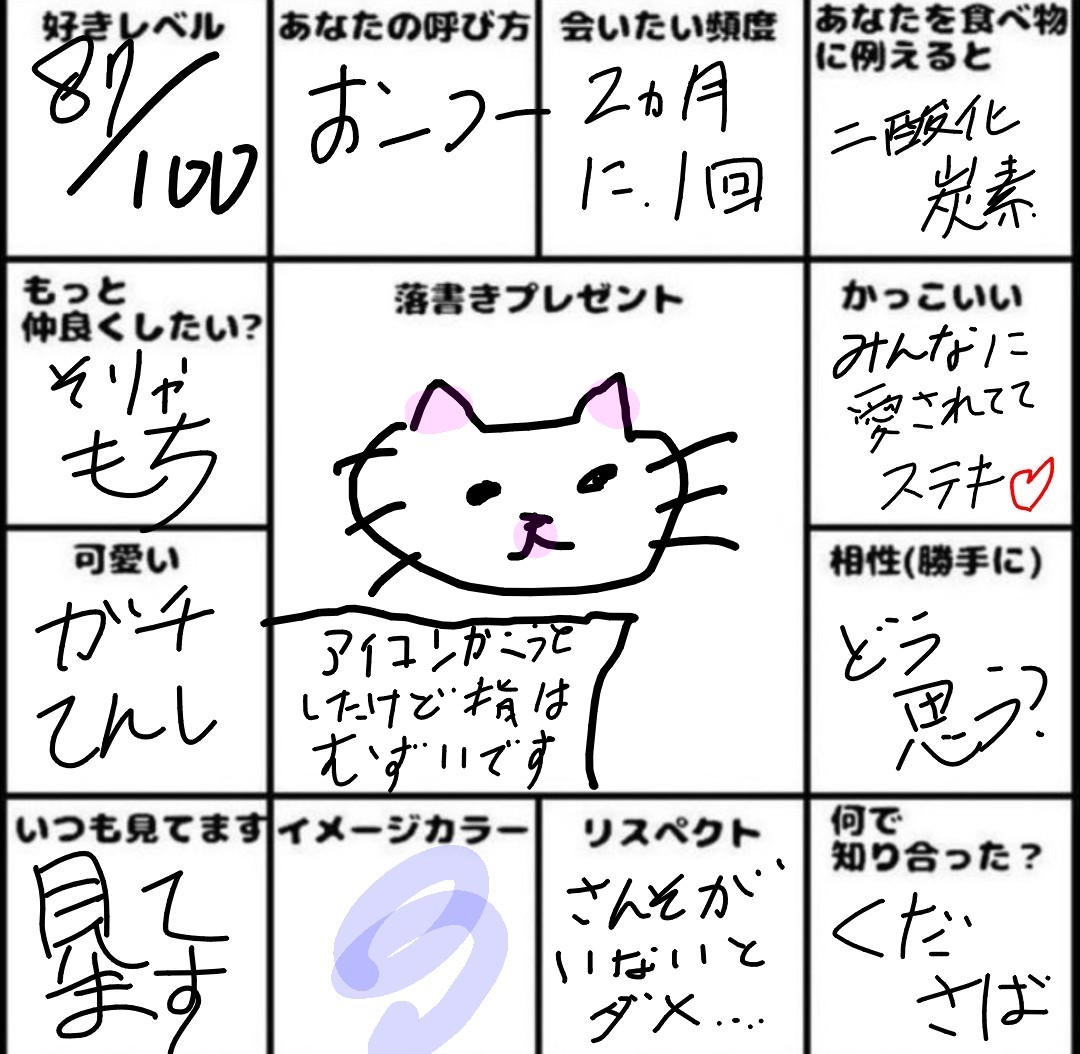 好きレベル
87/100
あなたの呼び方
おーつー
会いたい頻度
2ヵ月
に.1回
あなたを食べ物
に例えると
二酸化
炭素
もっと
仲良くしたい?
そりゃ
もち
落書きプレゼント
アイコンかこうと
したけど指は
むずいです
かっこいい
みんなに
愛されてて
ステキ♡
可愛い
ガチ
てんし
相性(勝手に)
どう
思う?
いつも見てます
見て
ます
イメージカラー
リスペクト
さんそが
いないと
ダメ....
何で
知り合った？
くだ
さば